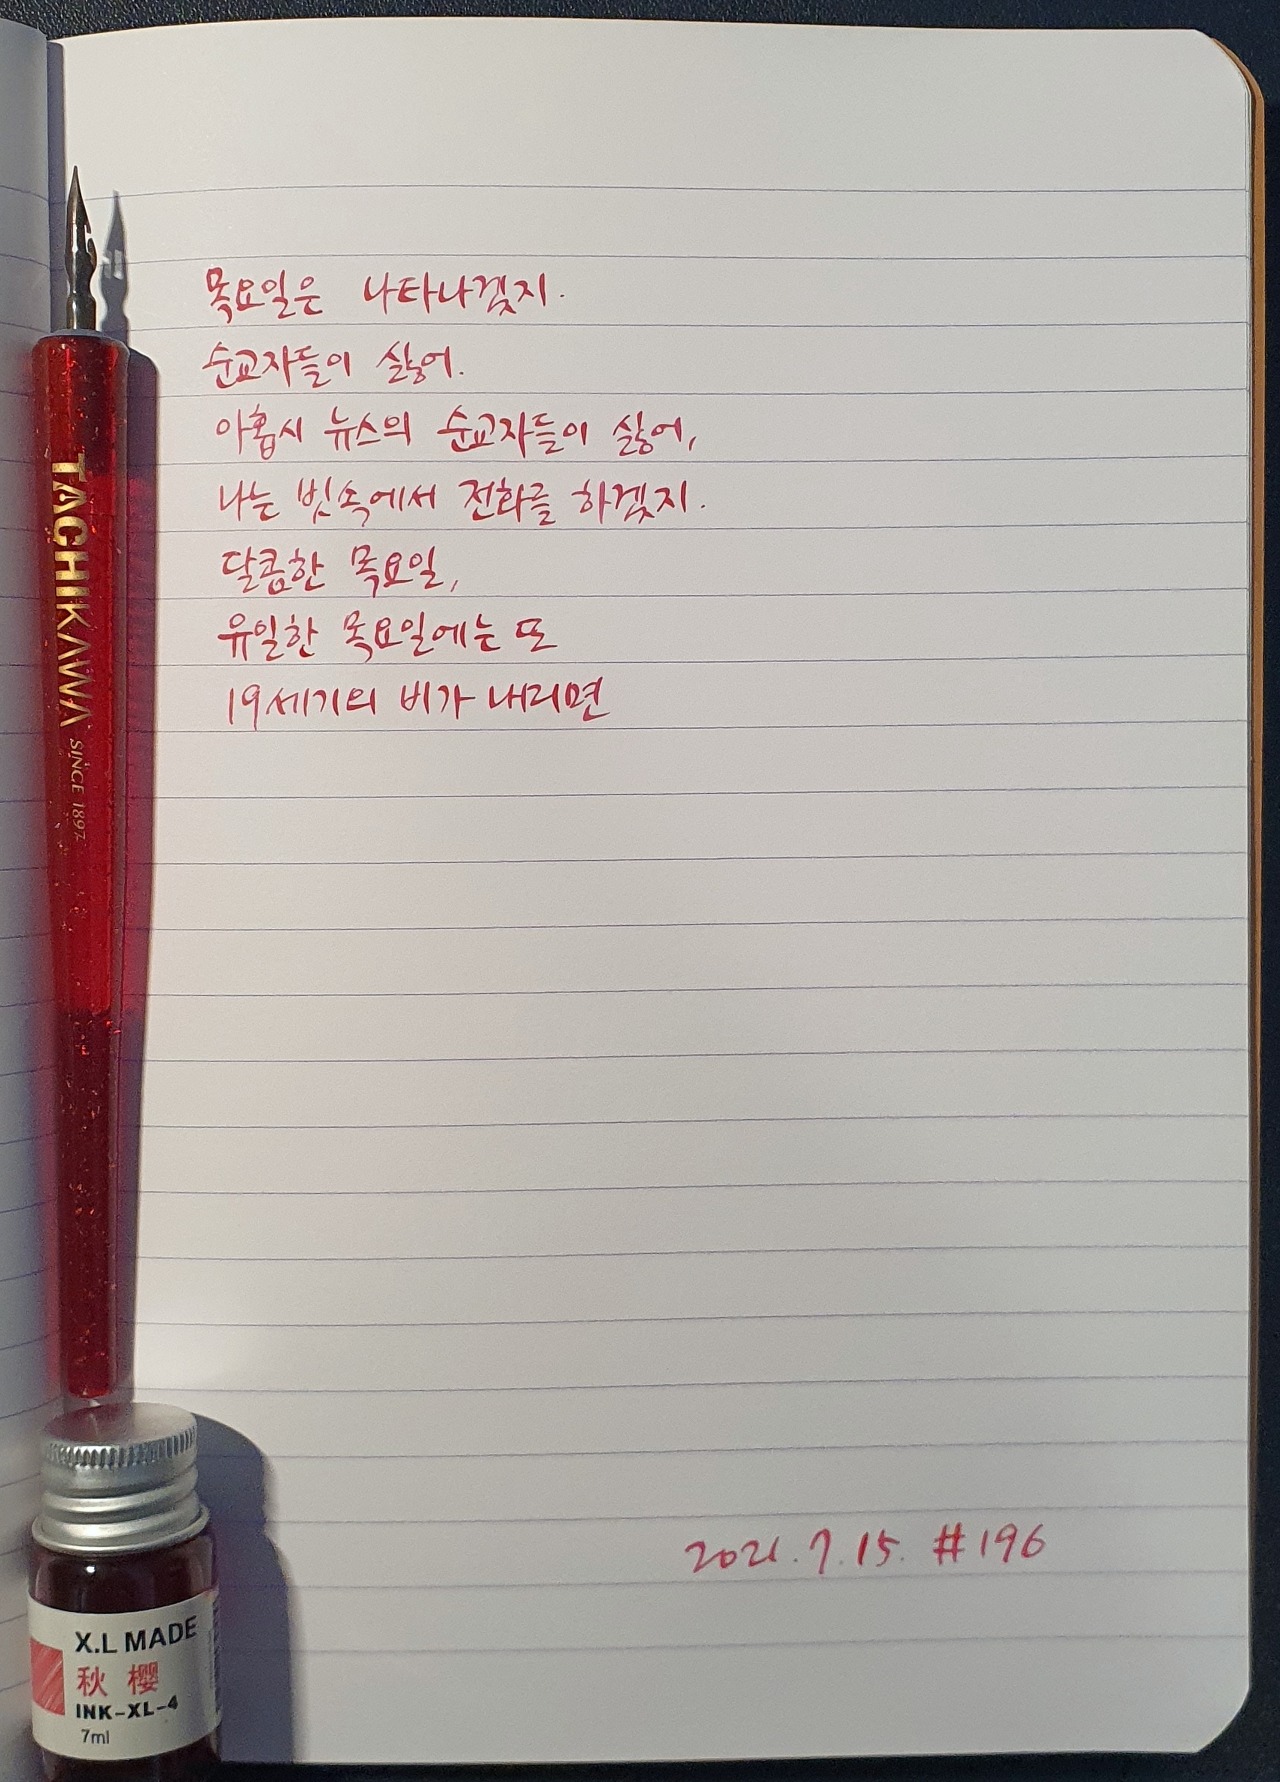 목요일은 나타나겠지.
순교자들이 싫어.
아홉시 뉴스의 순교자들이 싫어,
나는 빗속에서 전화를 하겠지.
달콤한 목요일,
유일한 목요일에는 또
19세기의 비가 내리면
TACHIKAWA SINCE 1897
2021.7.15. #196
X.L MADE
秋樱
INK-XL-4
7ml